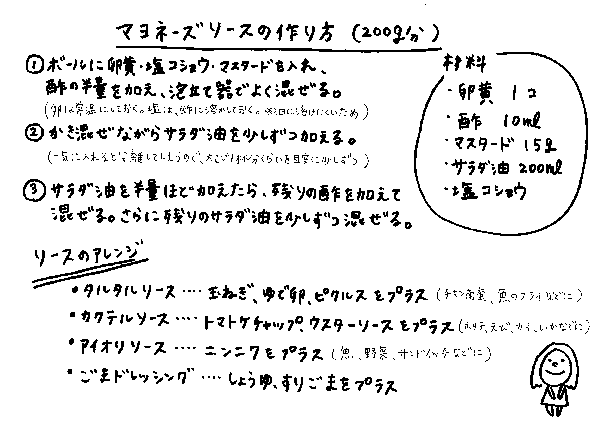 マヨネーズソースの作り方 (200g分)
① ボールに卵黄・塩コショウ・マスタードを入れ、
酢の半量を加え、泡立て器でよく混ぜる。
(卵は常温にしておく。塩は、酢に溶かしておく。油に溶けにくいため)
② かき混ぜながらサラダ油を少しずつ加える。
(一気に入れると分離してしまうので、大さじ1杯分くらいを目安に少しずつ)
③ サラダ油を半量ほど加えたら、残りの酢を加えて
混ぜる。さらに残りのサラダ油を少しずつ混ぜる。
材料
・卵黄 1コ
・酢 10ml
・マスタード 15g
・サラダ油 200ml
・塩コショウ
ソースのアレンジ
・タルタルソース…. 玉ねぎ、ゆで卵、ピクルスをプラス (チキン南蛮、魚のフライなどに)
・カクテルソース…. トマトケチャップ、ウスターソースをプラス (えび、カニ、いかなどに)
・アイオリソース…. ニンニクをプラス (魚、野菜、サンドイッチなどに)
・ごまドレッシング…. しょうゆ、すりごまをプラス